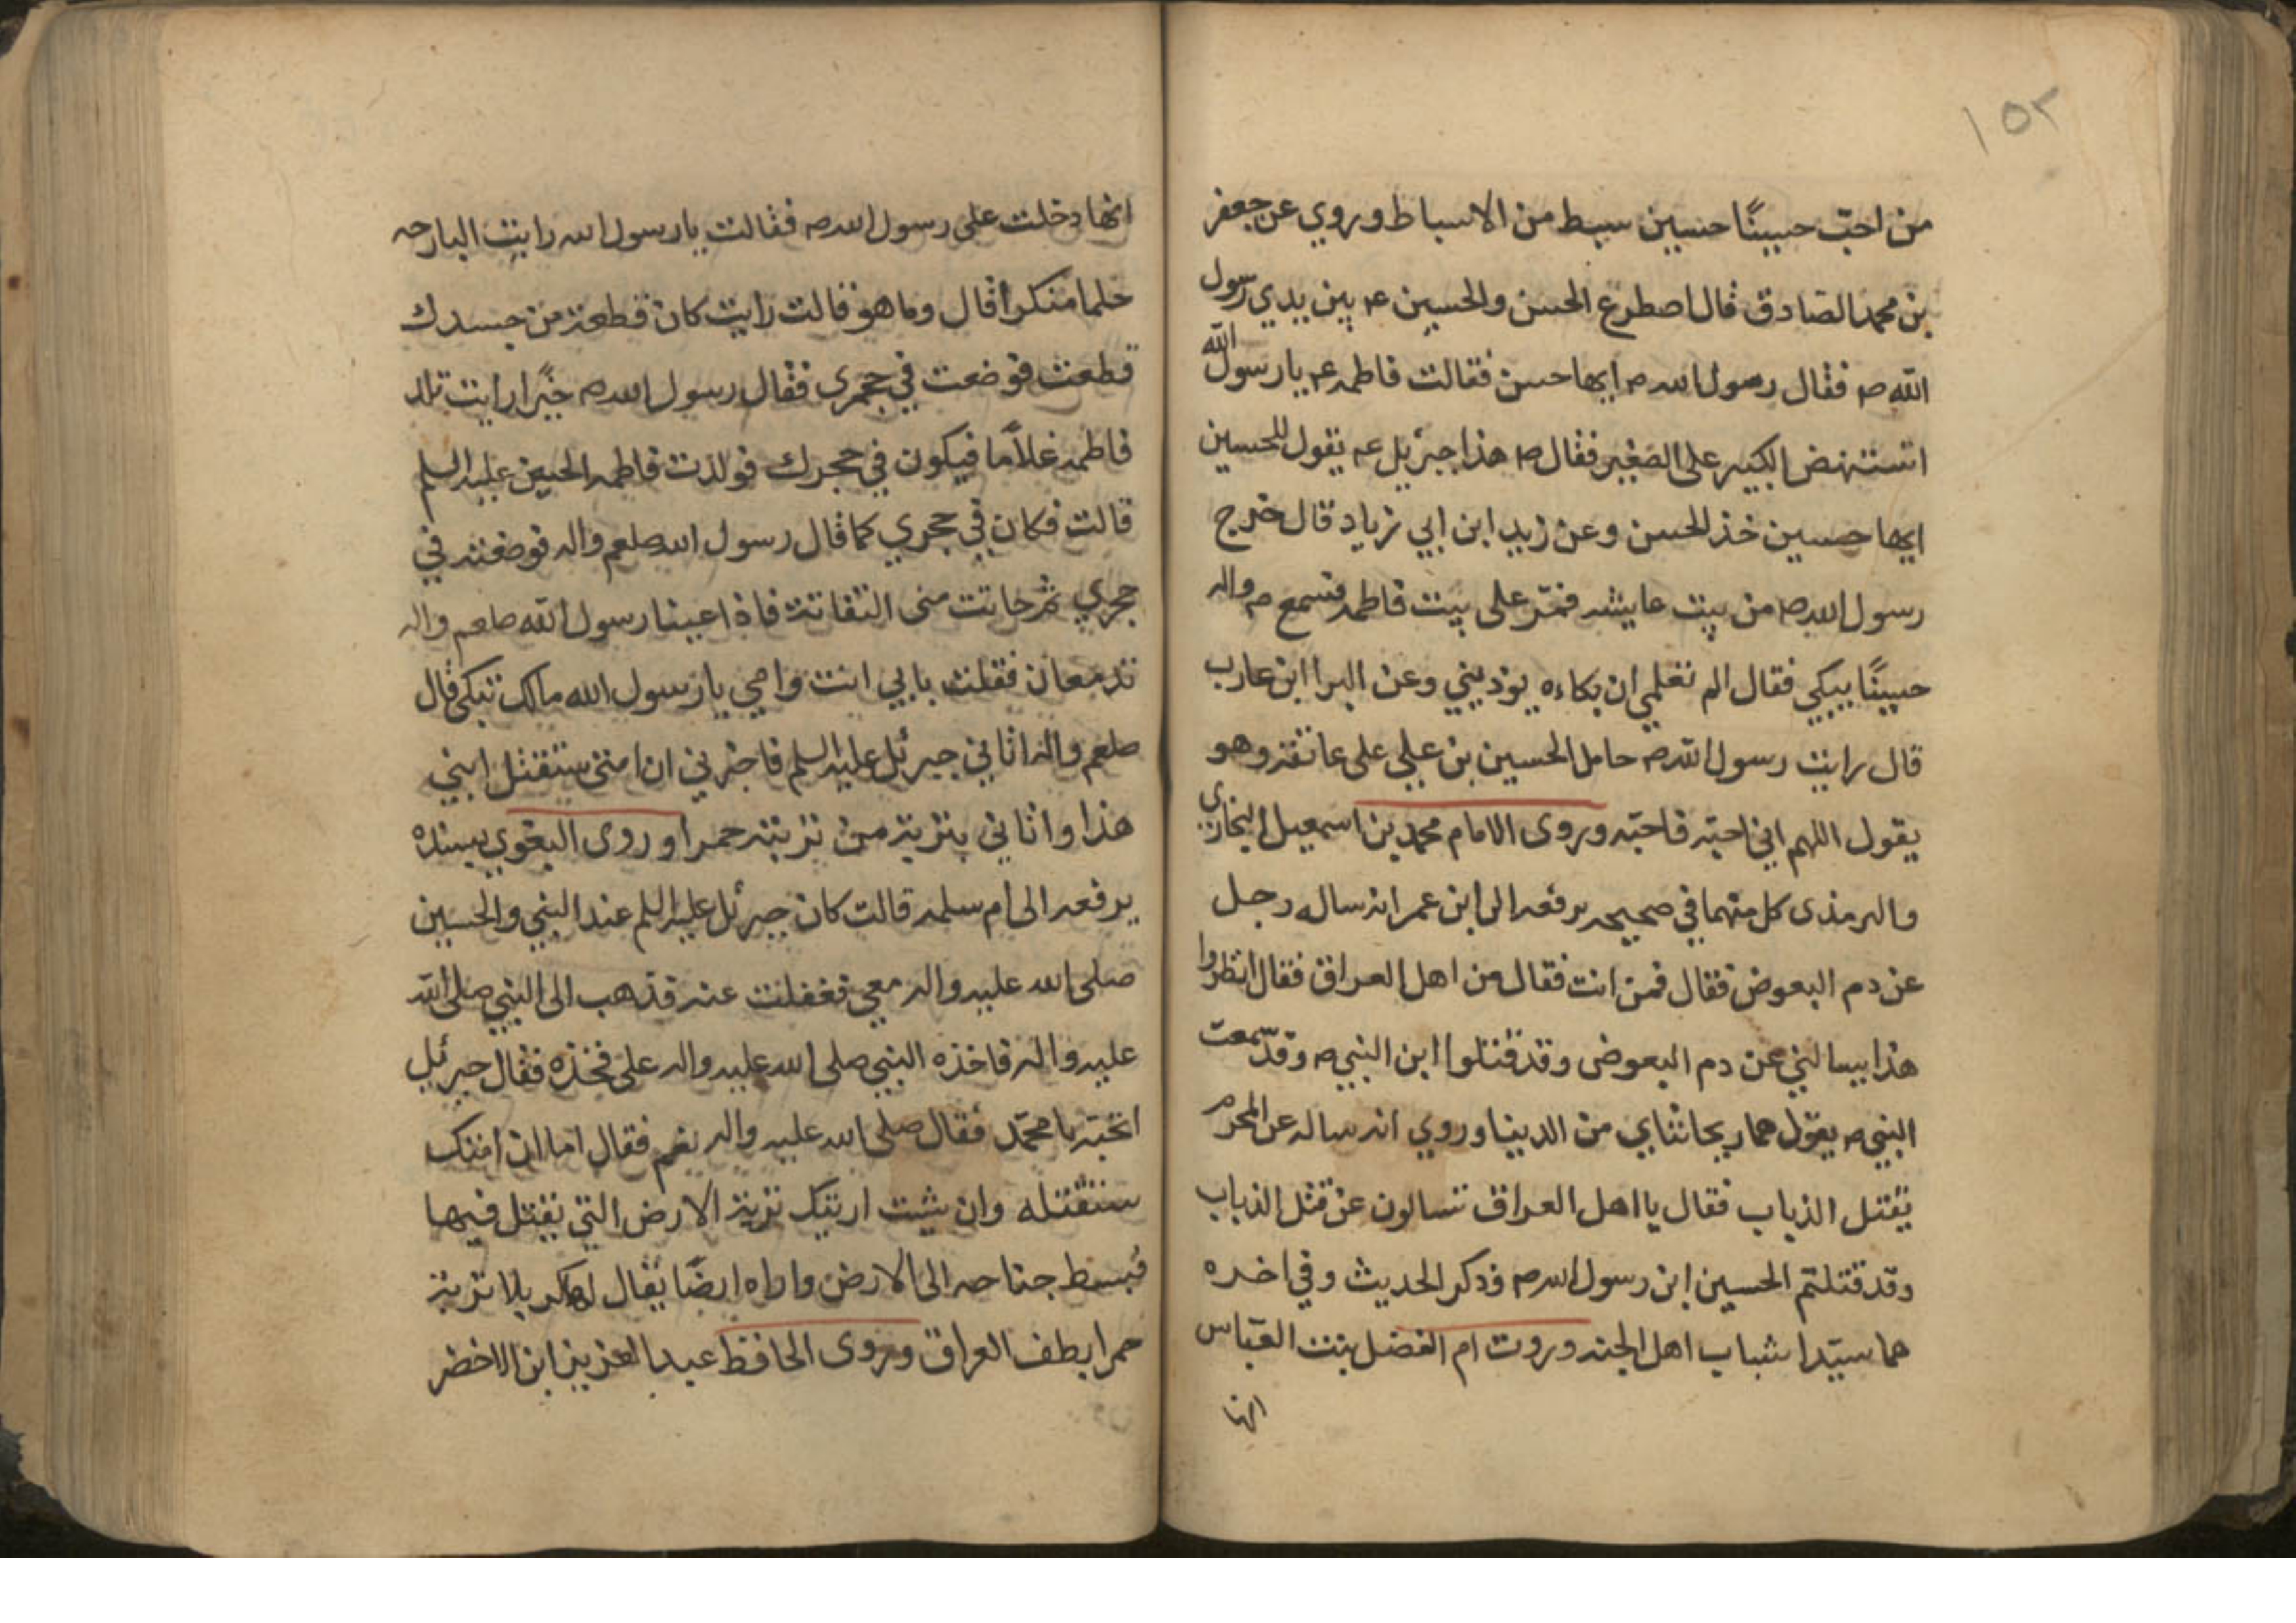 ١٥٢
من احبّ حسينًا حسين سبط من الاسباط وروي عن جعفر
بن محمد الصادق قال اصطرع الحسن والحسين ع م بين يدي رسول
الله ص فقال رسول الله ص ايها حسن فقالت فاطمه ع م يا رسول الله
اتستنهض الكبير على الصغير فقال ص هذا جبريل ع م يقول للحسين
ايها حسين خذ الحسن وعن زيد ابن ابي زياد قال خرج
رسول الله ص من بيت عايشه فمرّ على بيت فاطمه فسمع ص واله
حسينًا يبكي فقال الم تعلمي ان بكاءه يوذيني وعن البرا ابن عارب
قال رايت رسول الله ص حامل الحسين بن علي على عاتقه وهو
يقول اللهم اني احبّه فاحبّه وروى الامام محمد بن اسمعيل البخاري
والترمذى كل منهما في صحيحه يرفعه الى ابن عمر انه ساله رجل
عن دم البعوض فقال فمن انت فقال من اهل العراق فقال انظروا
هذا يسالني عن دم البعوض وقد قتلوا ابن النبي ص وقد سمعت
النبي ص يقول هما ريحانتاي من الدينا وروي انه ساله عن المحرم
يقتل الذباب فقال يا اهل العراق تسالون عن قتل الذباب
وقد قتلتم الحسين ابن رسول الله ص فذكر الحديث وفي اخره
هما سيّدا شباب اهل الجنه وروت ام الفضل بنت العبّاس
انها
انها دخلت على رسول الله ص فقالت يا رسول الله رايت البارحه
حلما منكرا قال وما هو قالت رايت كان قطعة من جسدك
قطعت فوضعت في حجرى فقال رسول الله ص خيًرا رايت تلد
فاطمه غلامًا فيكون في حجرك فولدت فاطمه الحسين عليه السلم
قالت فكان في حجري كما قال رسول الله صلعم واله فوضعته في
حجري ثم حانت منى التفاتة فاذا عينا رسول الله صلعم واله
تدمعان فقلت بابي انت وامي يا رسول الله مالك تبكى قال
صلعم واله اتاني جبرئل عليه السلم فاخبرني ان امتى ستقتل ابني
هذا واتاني بتربة من تربته حمرا وروى البغوي بسنده
يرفعه الى ام سلمه قالت كان جبرئل عليه السلم عند النبي والحسين
صلى الله عليه واله معي فغفلت عنه فذهب الى النبي صلى الله
عليه واله فاخذه النبي صلى الله عليه واله على فخذه فقال جبرئل
اتحبّه يا محمّد فقال صلى الله عليه واله نعم فقال اما ان امتك
ستقتله وان شيت اريتك تربة الارض التي يقتل فيها
فبسط جناحه الى الارض واراه ارضًا يقال لها كربلا تربة
حمرا بطف العراق وروى الحافظ عبد العزيز ابن الاخضر